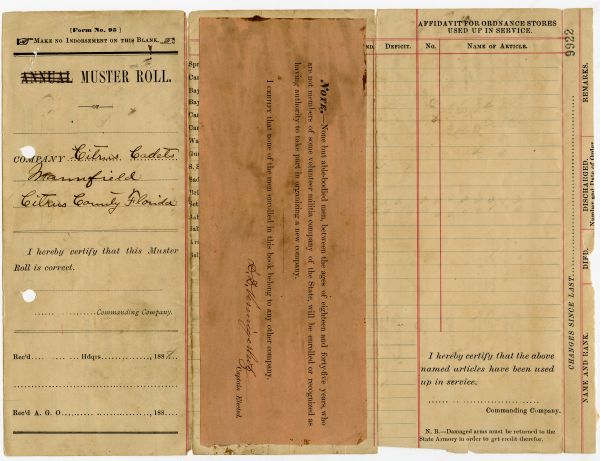 [Form No. 95]
MAKE NO INDORSEMENT ON THIS BLANK.
ANNUAL MUSTER ROLL.
OF
COMPANY Citrus Cadets
Mannfield
Citrus County Florida
I hereby certify that this Muster
Roll is correct.
Commanding Company.
Rec'd Hdqrs. 188
Rec'd A. G. O. 188
NOTE.—None but able-bodied men, between the ages of eighteen and forty-five years, who
are not members of some volunteer militia company of the State, will be enrolled or recognized as
having authority to take part in organizing a new company.
I CERTIFY that none of the men enrolled in this book belong to any other company.
Captain Elected.
DEFICIT.
AFFIDAVIT FOR ORDNANCE STORES
USED UP IN SERVICE.
No. NAME OF ARTICLE.
I hereby certify that the above
named articles have been used
up in service.
Commanding Company.
N. B.—Damaged arms must be returned to the
State Armory in order to get credit therefor.
9922
CHANGES SINCE LAST
NAME AND RANK.
DIED.
DISCHARGED.
Number and Date of Order
REMARKS.